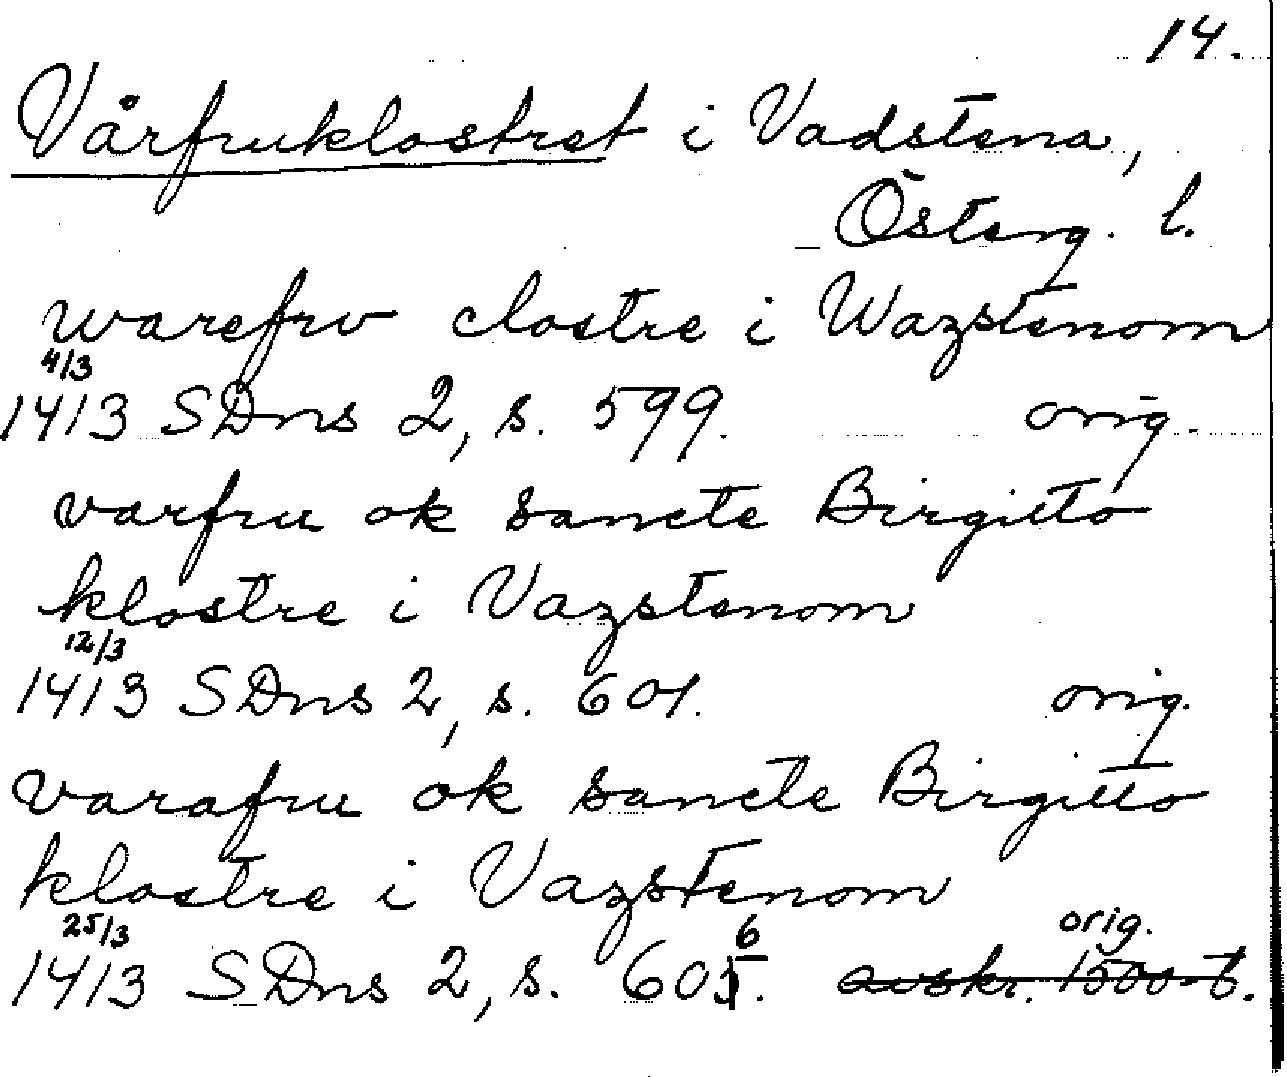 14.
Vårfruklostret i Vadstena,
Österg. l.
warefrv clostre i Wazstenom
4/3
1413 SDns 2, s. 599. orig.
varfru ok sancte Birgitto
klostre i Vazstenom
12/3
1413 SDns 2, s. 601. orig.
varafru ok sancte Birgitto
klostre i Vazstenom
25/3 6 orig.
1413 SDns 2, s. 605. avskr. 1500-t.